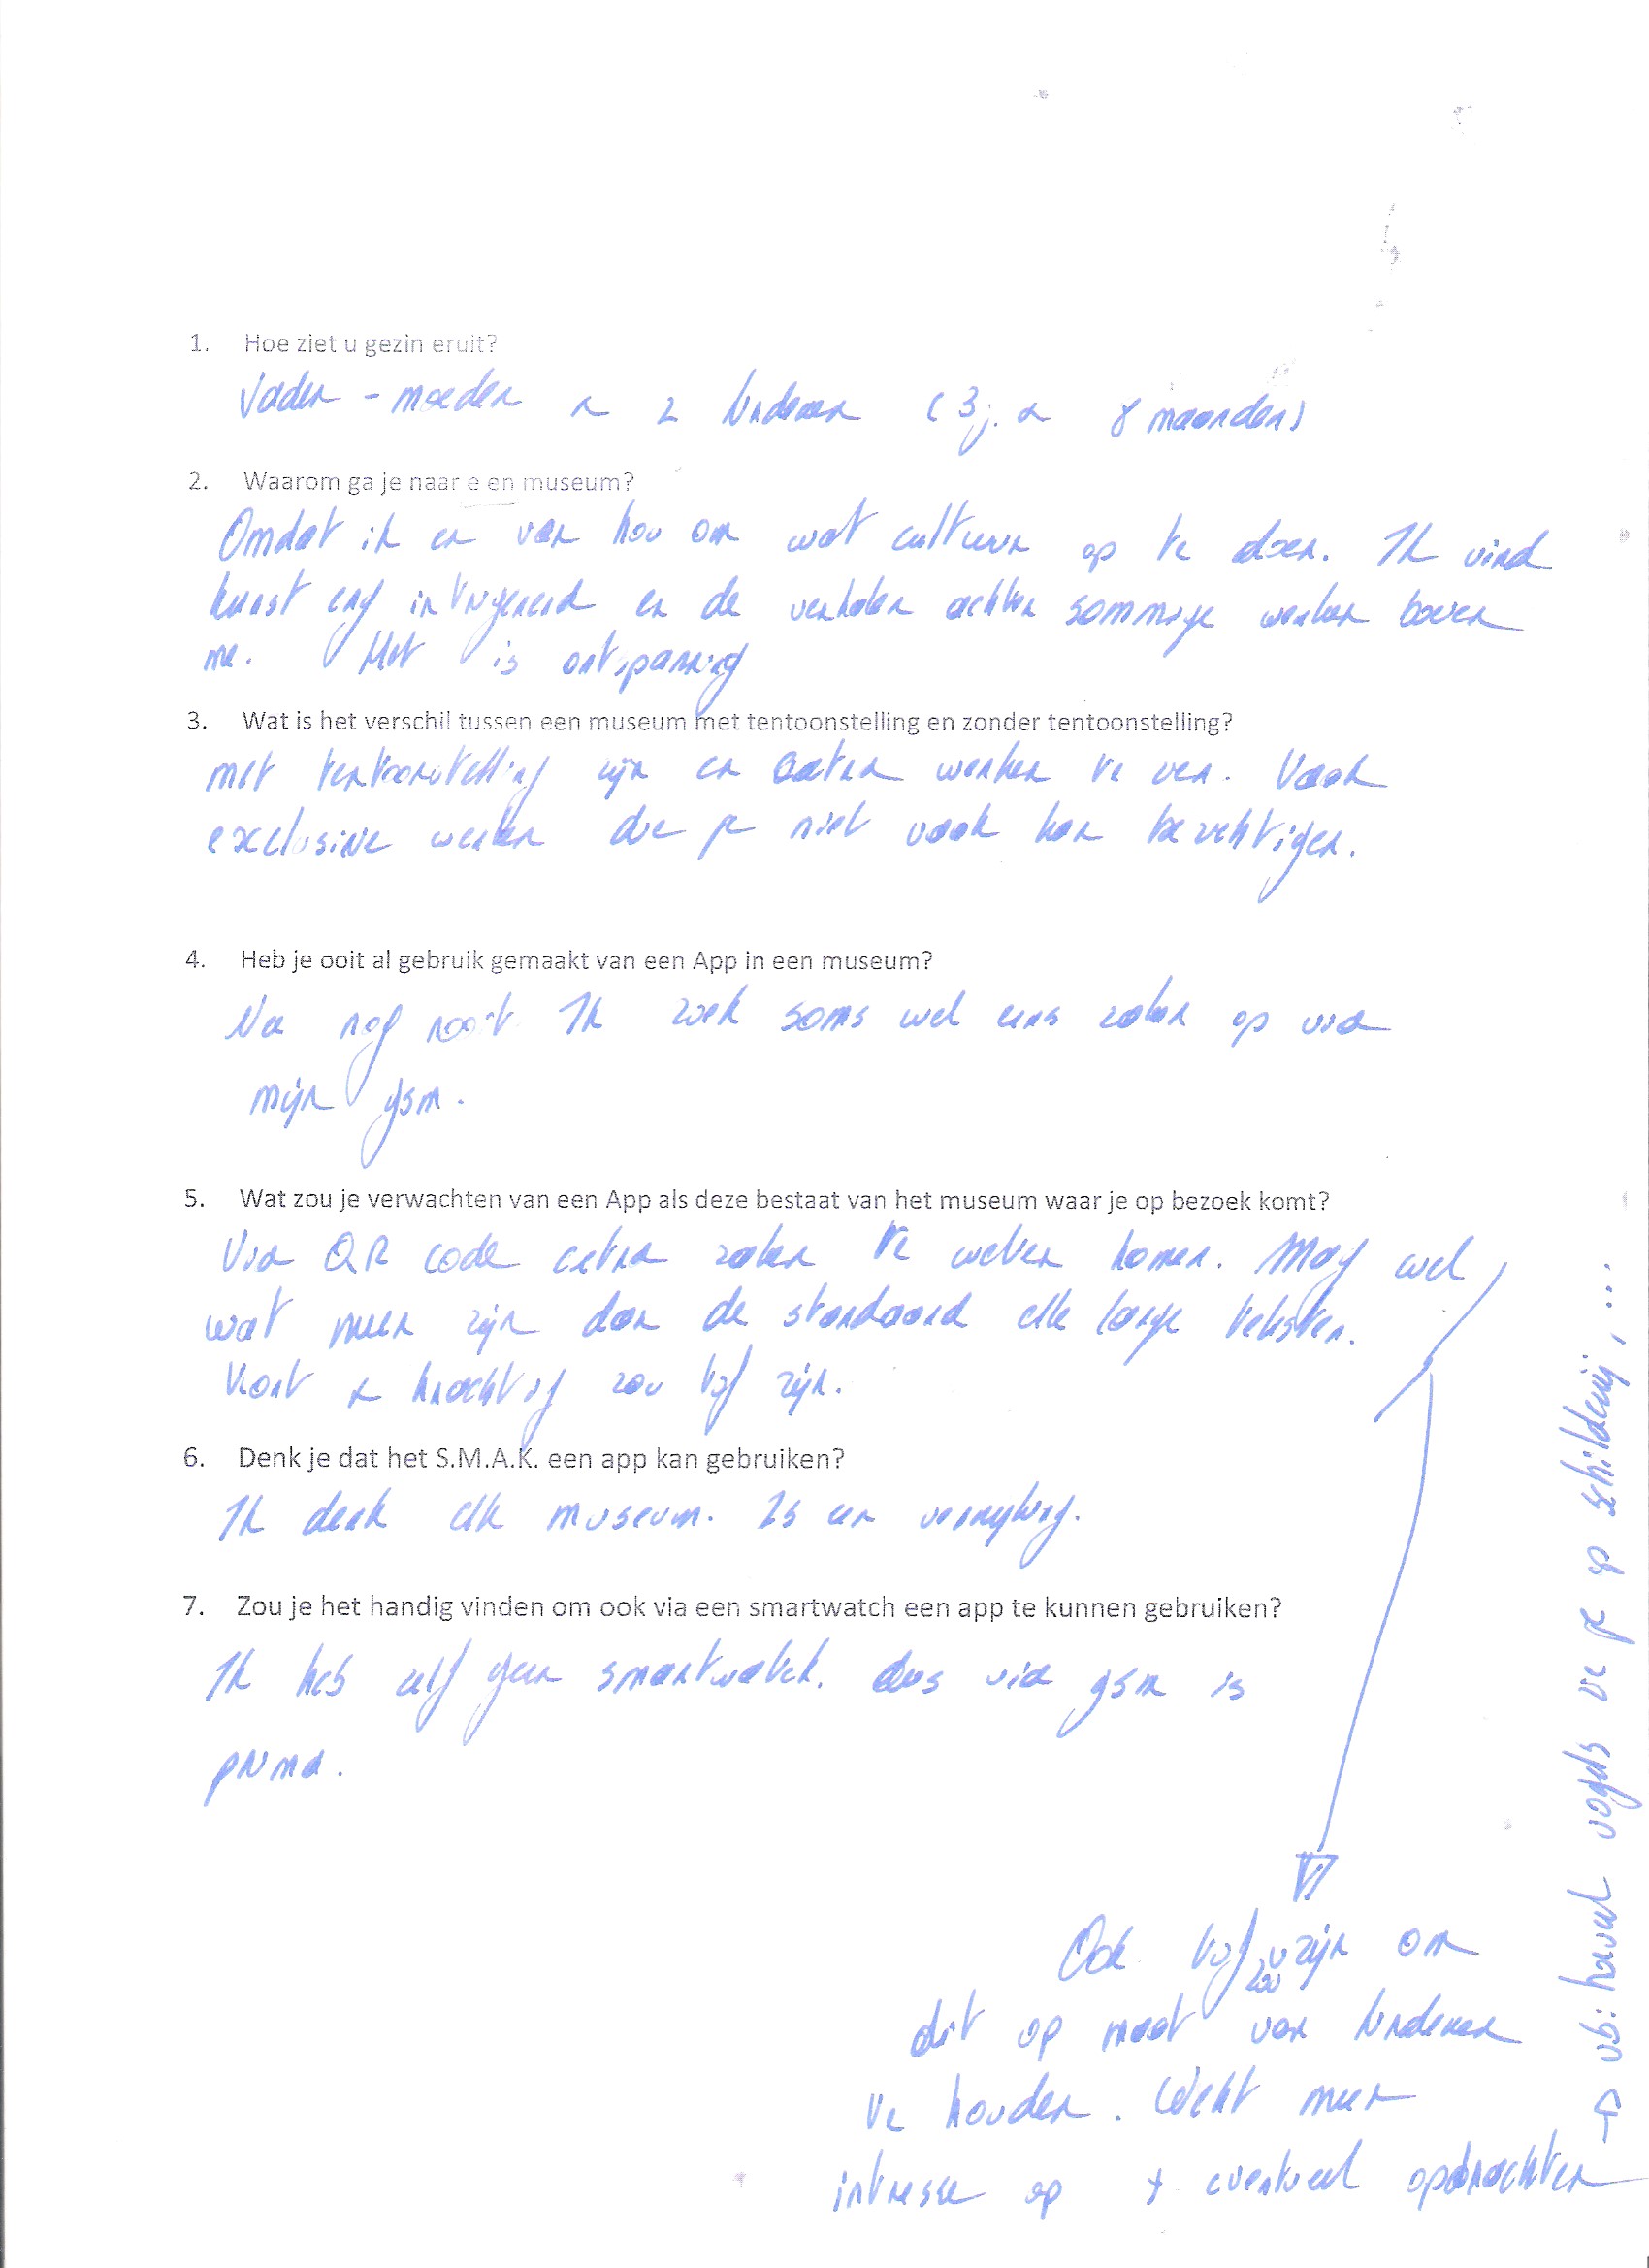 1. Hoe ziet u gezin eruit?
Vader - moeder + 2 kinderen (3j. + 8 maanden)
2. Waarom ga je naar e en museum?
Omdat ik er van hou om wat cultuur op te doen. Ik vind
kunst erg intrigerend en de verhalen achter sommige werken boeien
me. Het is ontspanning
3. Wat is het verschil tussen een museum met tentoonstelling en zonder tentoonstelling?
met tentoonstelling zijn er extra werken te zien. Vaak
exclusive werken die je niet vaak kan bezichtigen.
4. Heb je ooit al gebruik gemaakt van een App in een museum?
Nee nog nooit. Ik zoek soms wel eens zaken op via
mijn gsm.
5. Wat zou je verwachten van een App als deze bestaat van het museum waar je op bezoek komt?
Via QR code extra zaken te weten komen. Mag wel
wat meer zijn dan de standaard elle lange teksten.
Kort & krachtig zou tof zijn.
6. Denk je dat het S.M.A.K. een app kan gebruiken?
Ik denk elk museum. Is een verrijking.
7. Zou je het handig vinden om ook via een smartwatch een app te kunnen gebruiken?
Ik heb zelf geen smartwatch. dus via gsm is
prima.
Ook tof zou zijn om
dit op maat van kinderen
te houden. Wekt meer
intresse op + eventueel opdrachten
→ vb: hoeveel vogels zie je op schilderij, ...